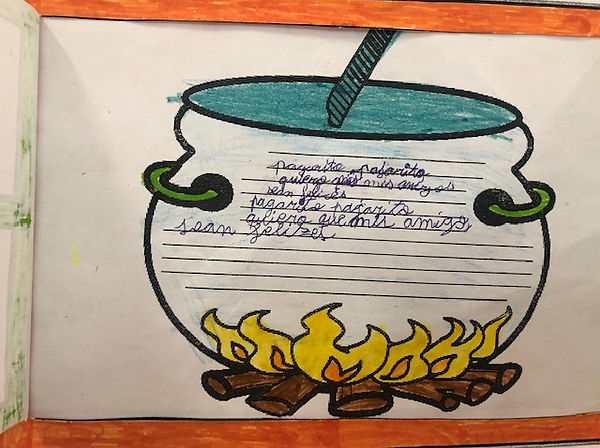 pagarito pajarito
quiero que mis amigos
sean felices
pagarito pajarito
quiero que mis amigos
sean felizes